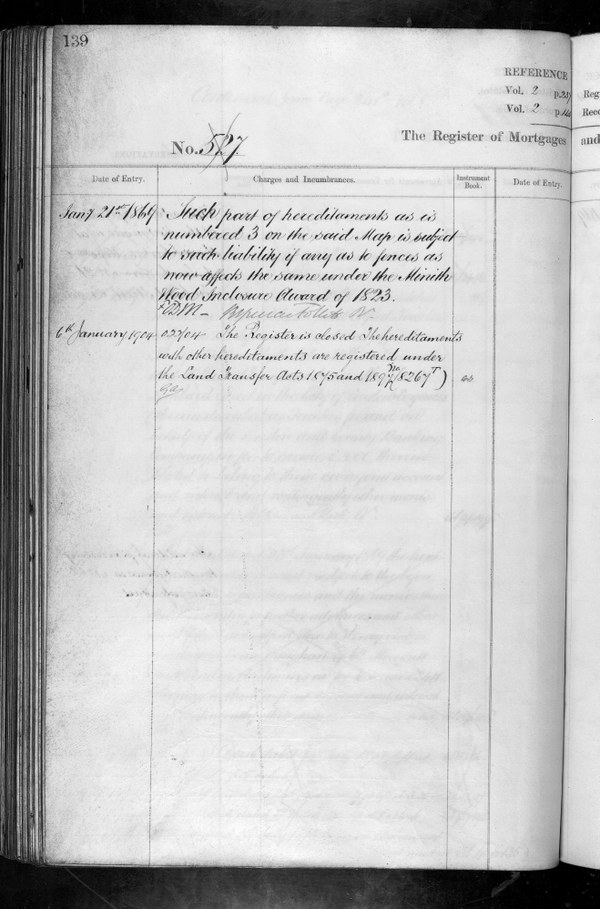 139
REFERENCE
Vol. 2 p.
Vol. 2 p.
Reg
Reco
No. 527
The Register of Mortgages and
Date of Entry.
Charges and Incumbrances.
Instrument Book.
Date of Entry.
Jany 21st 1869
Such part of hereditaments as is
numbered 3 on the said Map is subject
to such liability if any as to fences as
now affects the same under the
Wood Inclosure Award of 1823.
6th January 1904
02204 The Register is closed The hereditaments
with other hereditaments are registered under
the Land Transfer Acts 1875 and 1897 (No 8267T)